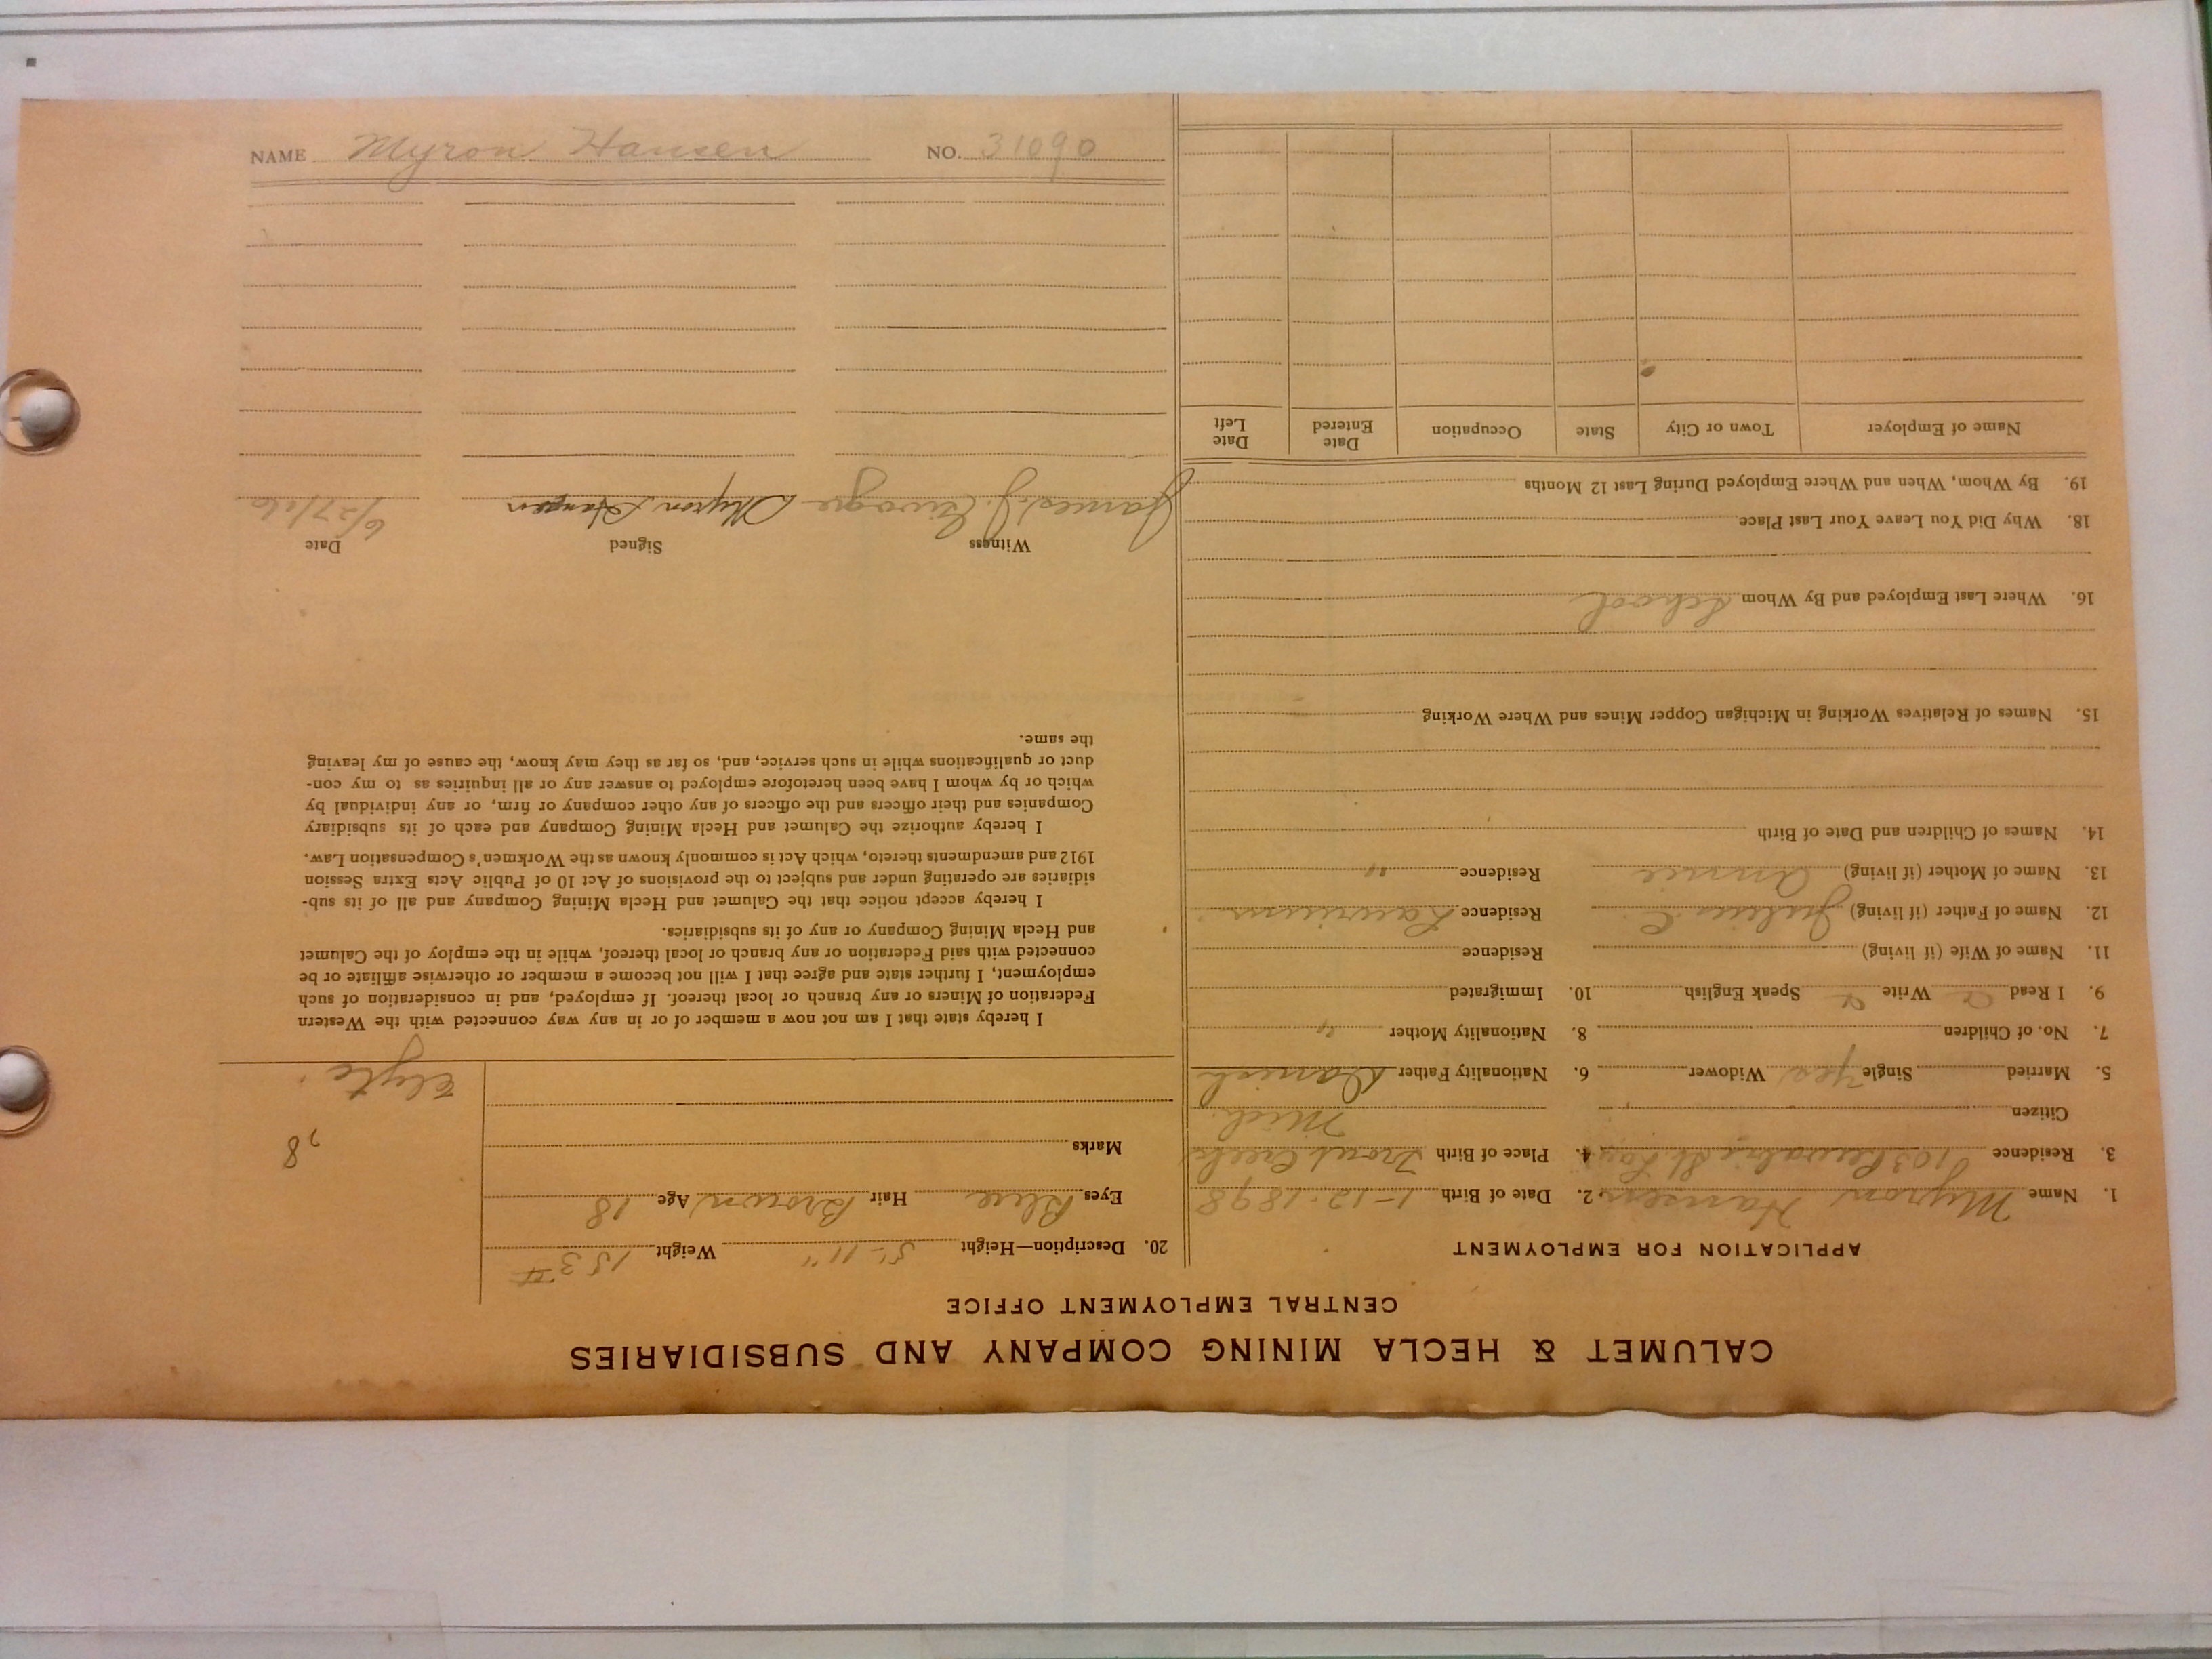 CALUMET & HECLA MINING COMPANY AND SUBSIDIARIES
CENTRAL EMPLOYMENT OFFICE
APPLICATION FOR EMPLOYMENT
1. Name Myron Hansen 2. Date of Birth 1-12-1898
3. Residence 4. Place of Birth Trout Creek
Citizen Mich.
5. Married Single Yes Widower 6. Nationality Father Danish
7. No. of Children 8. Nationality Mother "
9. I Read Write Speak English 10. Immigrated
11. Name of Wife (if living) Residence
12. Name of Father (if living) Julius C. Residence Laurium
13. Name of Mother (if living) Annie Residence "
14. Names of Children and Date of Birth
15. Names of Relatives Working in Michigan Copper Mines and Where Working
16. Where Last Employed and By Whom School
18. Why Did You Leave Your Last Place
19. By Whom, When and Where Employed During Last 12 Months
Name of Employer Town or City State Occupation Date Entered Date Left
20. Description—Height 5'-11" Weight 153#
Eyes Blue Hair Brown Age 18
Marks
I hereby state that I am not now a member of or in any way connected with the Western
Federation of Miners or any branch or local thereof. If employed, and in consideration of such
employment, I further state and agree that I will not become a member or otherwise affiliate or be
connected with said Federation or any branch or local thereof, while in the employ of the Calumet
and Hecla Mining Company or any of its subsidiaries.
I hereby accept notice that the Calumet and Hecla Mining Company and all of its sub-
sidiaries are operating under and subject to the provisions of Act 10 of Public Acts Extra Session
1912 and amendments thereto, which Act is commonly known as the Workmen's Compensation Law.
I hereby authorize the Calumet and Hecla Mining Company and each of its subsidiary
Companies and their officers and the officers of any other company or firm, or any individual by
which or by whom I have been heretofore employed to answer any or all inquiries as to my con-
duct or qualifications while in such service, and, so far as they may know, the cause of my leaving
the same.
Witness Signed Date
James J. Myron Hansen 6/27/16
NAME Myron Hansen NO. 31090